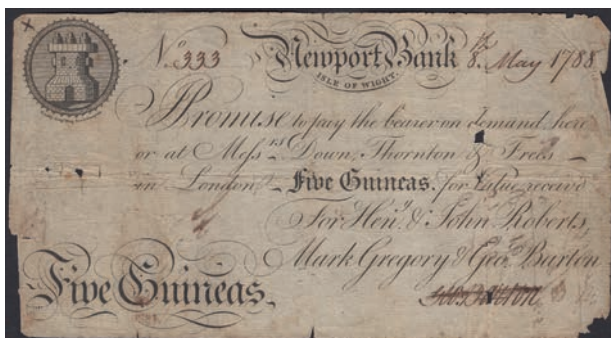 No. 333 Newport Bank 8th May 1788
ISLE OF WIGHT.
I Promise to pay the bearer on demand here
or at Messrs. Down, Thornton & Free's
in London Five Guineas. for Value receiv'd
For Heny. & John Roberts,
Mark Gregory & Geo. Burton
Five Guineas.